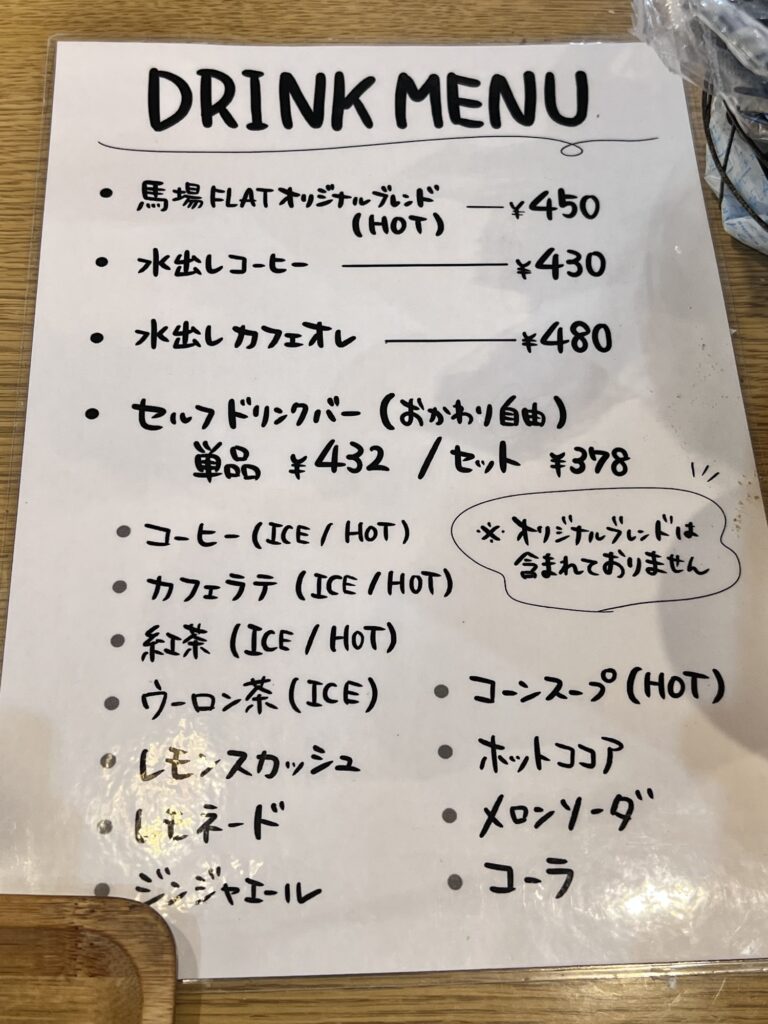 DRINK MENU
• 馬場FLATオリジナルブレンド ― ¥450
(HOT)
• 水出しコーヒー ― ¥430
• 水出しカフェオレ ― ¥480
• セルフドリンクバー (おかわり自由)
単品 ¥432 / セット ¥378
※ オリジナルブレンドは
含まれておりません
• コーヒー (ICE / HOT)
• カフェラテ (ICE / HOT)
• 紅茶 (ICE / HOT)
• ウーロン茶 (ICE)
• レモンスカッシュ
• レモネード
• ジンジャエール
• コーンスープ (HOT)
• ホットココア
• メロンソーダ
• コーラ